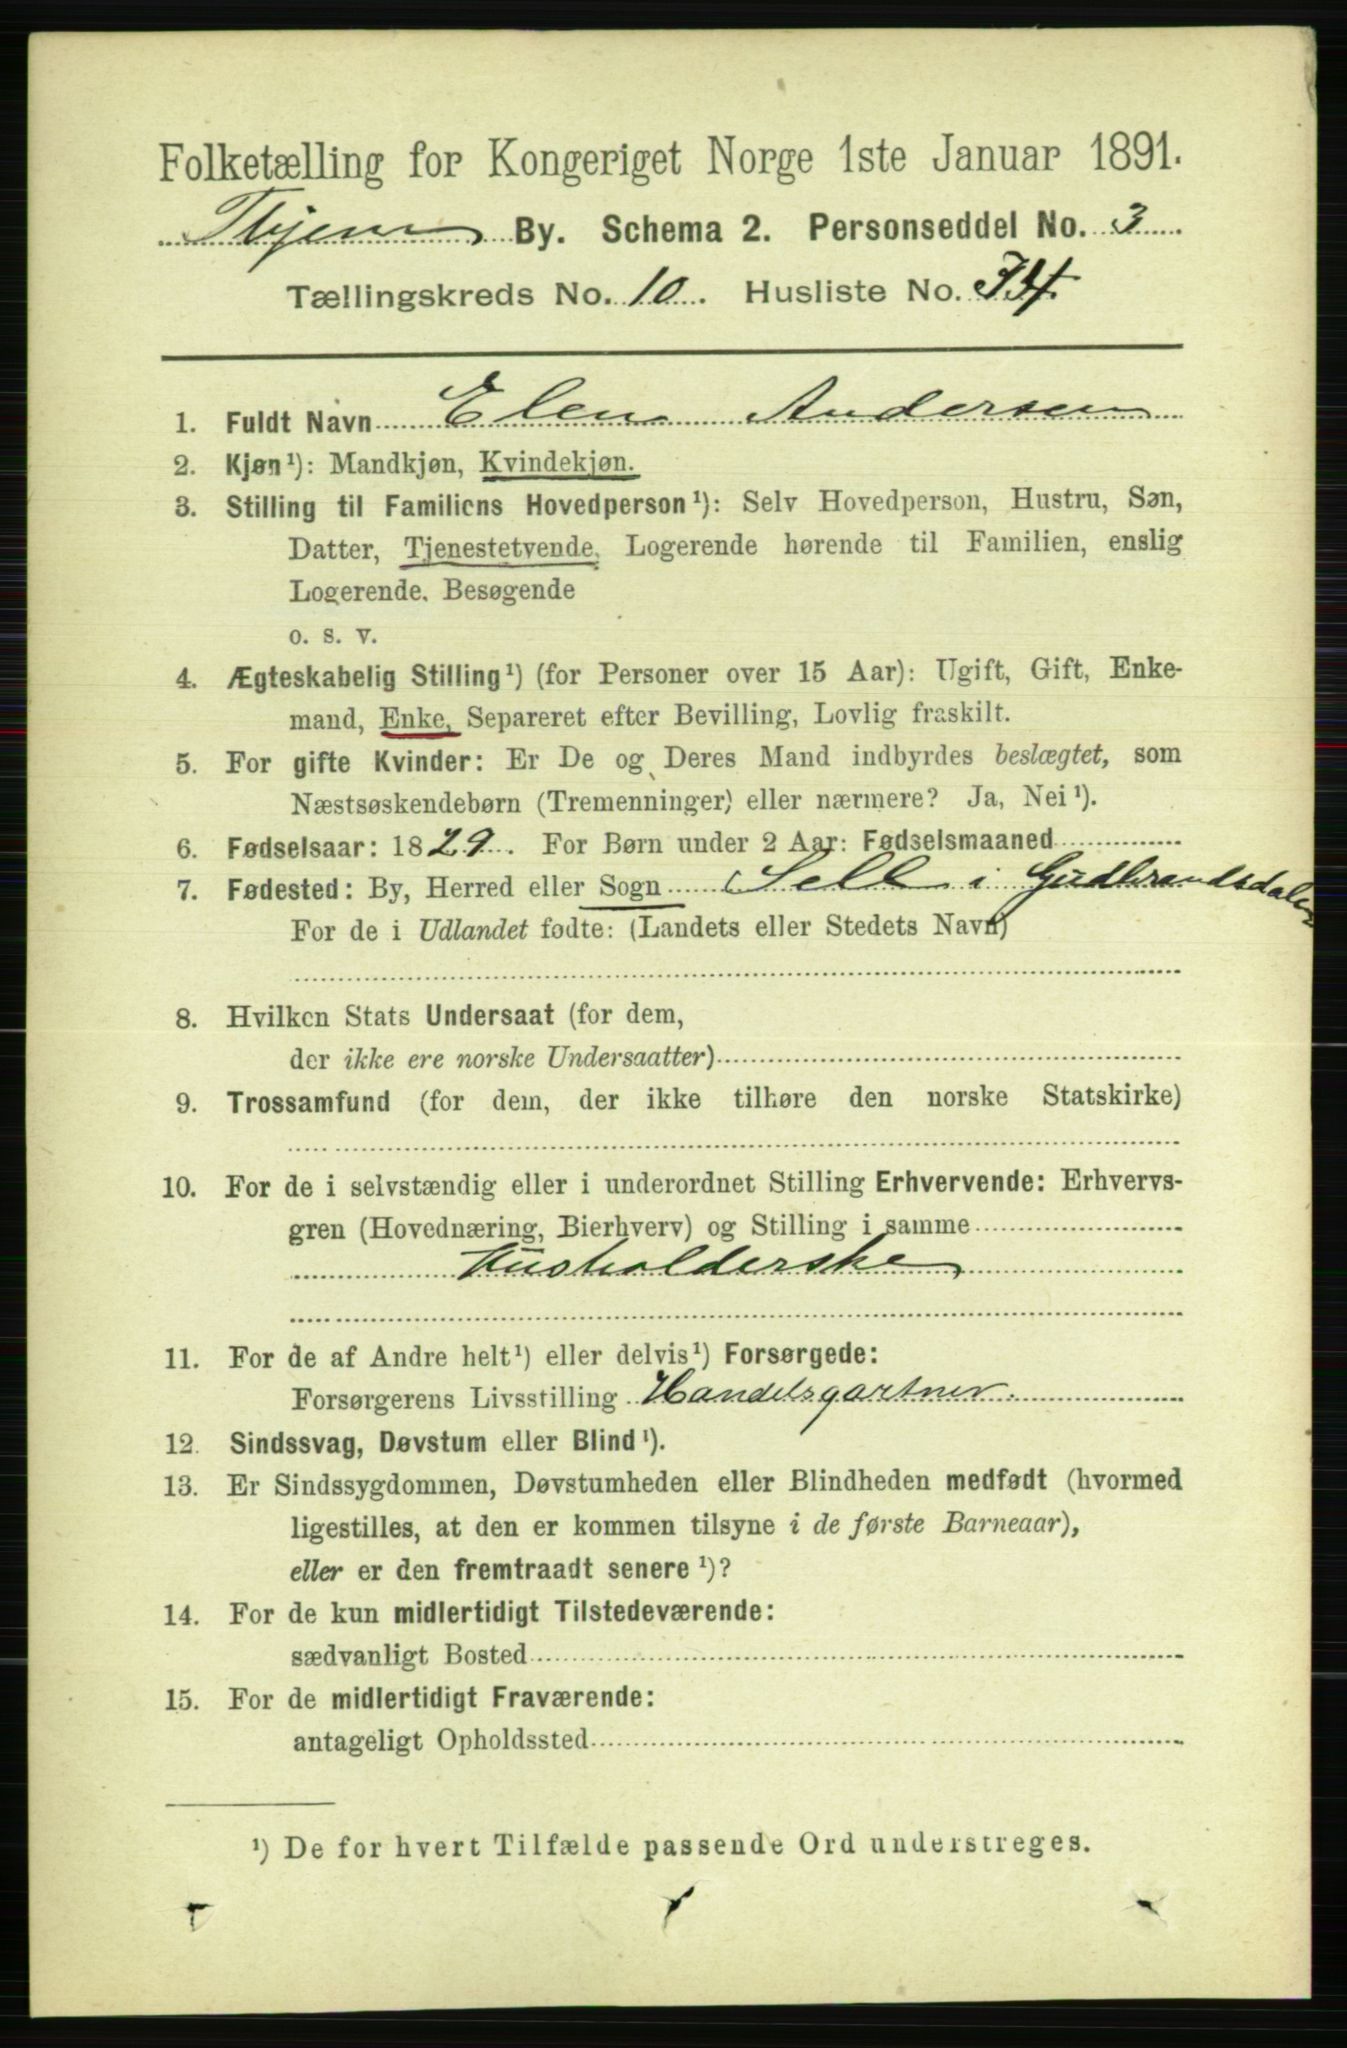 Folketælling for Kongeriget Norge 1ste Januar 1891.
Thjem By. Schema 2. Personseddel No. 3
Tællingskreds No. 10. Husliste No. 34.
1. Fuldt Navn Elen Andersen
2. Kjøn¹): Mandkjøn, Kvindekjøn.
3. Stilling til Familiens Hovedperson¹): Selv Hovedperson, Hustru, Søn,
Datter, Tjenestetvende, Logerende hørende til Familien, enslig
Logerende, Besøgende
o. s. v.
4. Ægteskabelig Stilling¹) (for Personer over 15 Aar): Ugift, Gift, Enke-
mand, Enke, Separeret efter Bevilling, Lovlig fraskilt.
5. For gifte Kvinder: Er De og Deres Mand indbyrdes beslægtet, som
Næstsøskendebørn (Tremenninger) eller nærmere? Ja, Nei¹).
6. Fødselsaar: 1829. For Børn under 2 Aar: Fødselsmaaned
7. Fødested: By, Herred eller Sogn Sell i Gudbrandsdalen
For de i Udlandet fødte: (Landets eller Stedets Navn)
8. Hvilken Stats Undersaat (for dem,
der ikke ere norske Undersaatter)
9. Trossamfund (for dem, der ikke tilhøre den norske Statskirke)
10. For de i selvstændig eller i underordnet Stilling Erhvervende: Erhvervs-
gren (Hovednæring, Bierhverv) og Stilling i samme
Husholderske
11. For de af Andre helt¹) eller delvis¹) Forsørgede:
Forsørgerens Livsstilling Handelsgartner.
12. Sindssvag, Døvstum eller Blind¹).
13. Er Sindssygdommen, Døvstumheden eller Blindheden medfødt (hvormed
ligestilles, at den er kommen tilsyne i de første Barneaar),
eller er den fremtraadt senere¹)?
14. For de kun midlertidigt Tilstedeværende:
sædvanligt Bosted
15. For de midlertidigt Fraværende:
antageligt Opholdssted
¹) De for hvert Tilfælde passende Ord understreges.